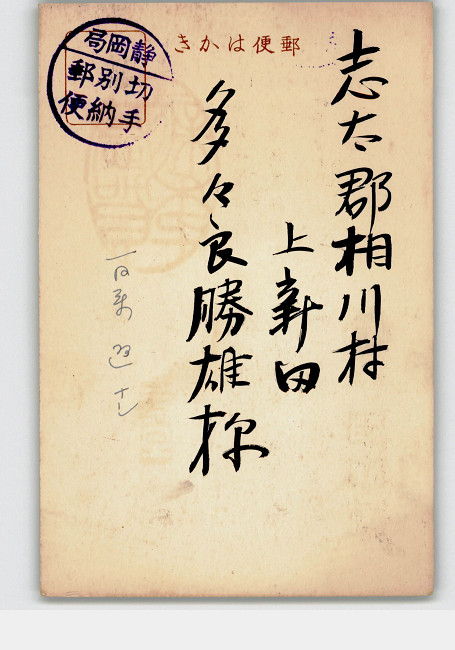 郵便はかき
静岡局
切手別納郵便
志太郡相川村
上新田
多々良勝雄様